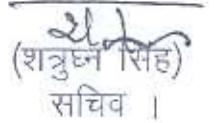 (शत्रुघ्न सिंह)
सचिव ।